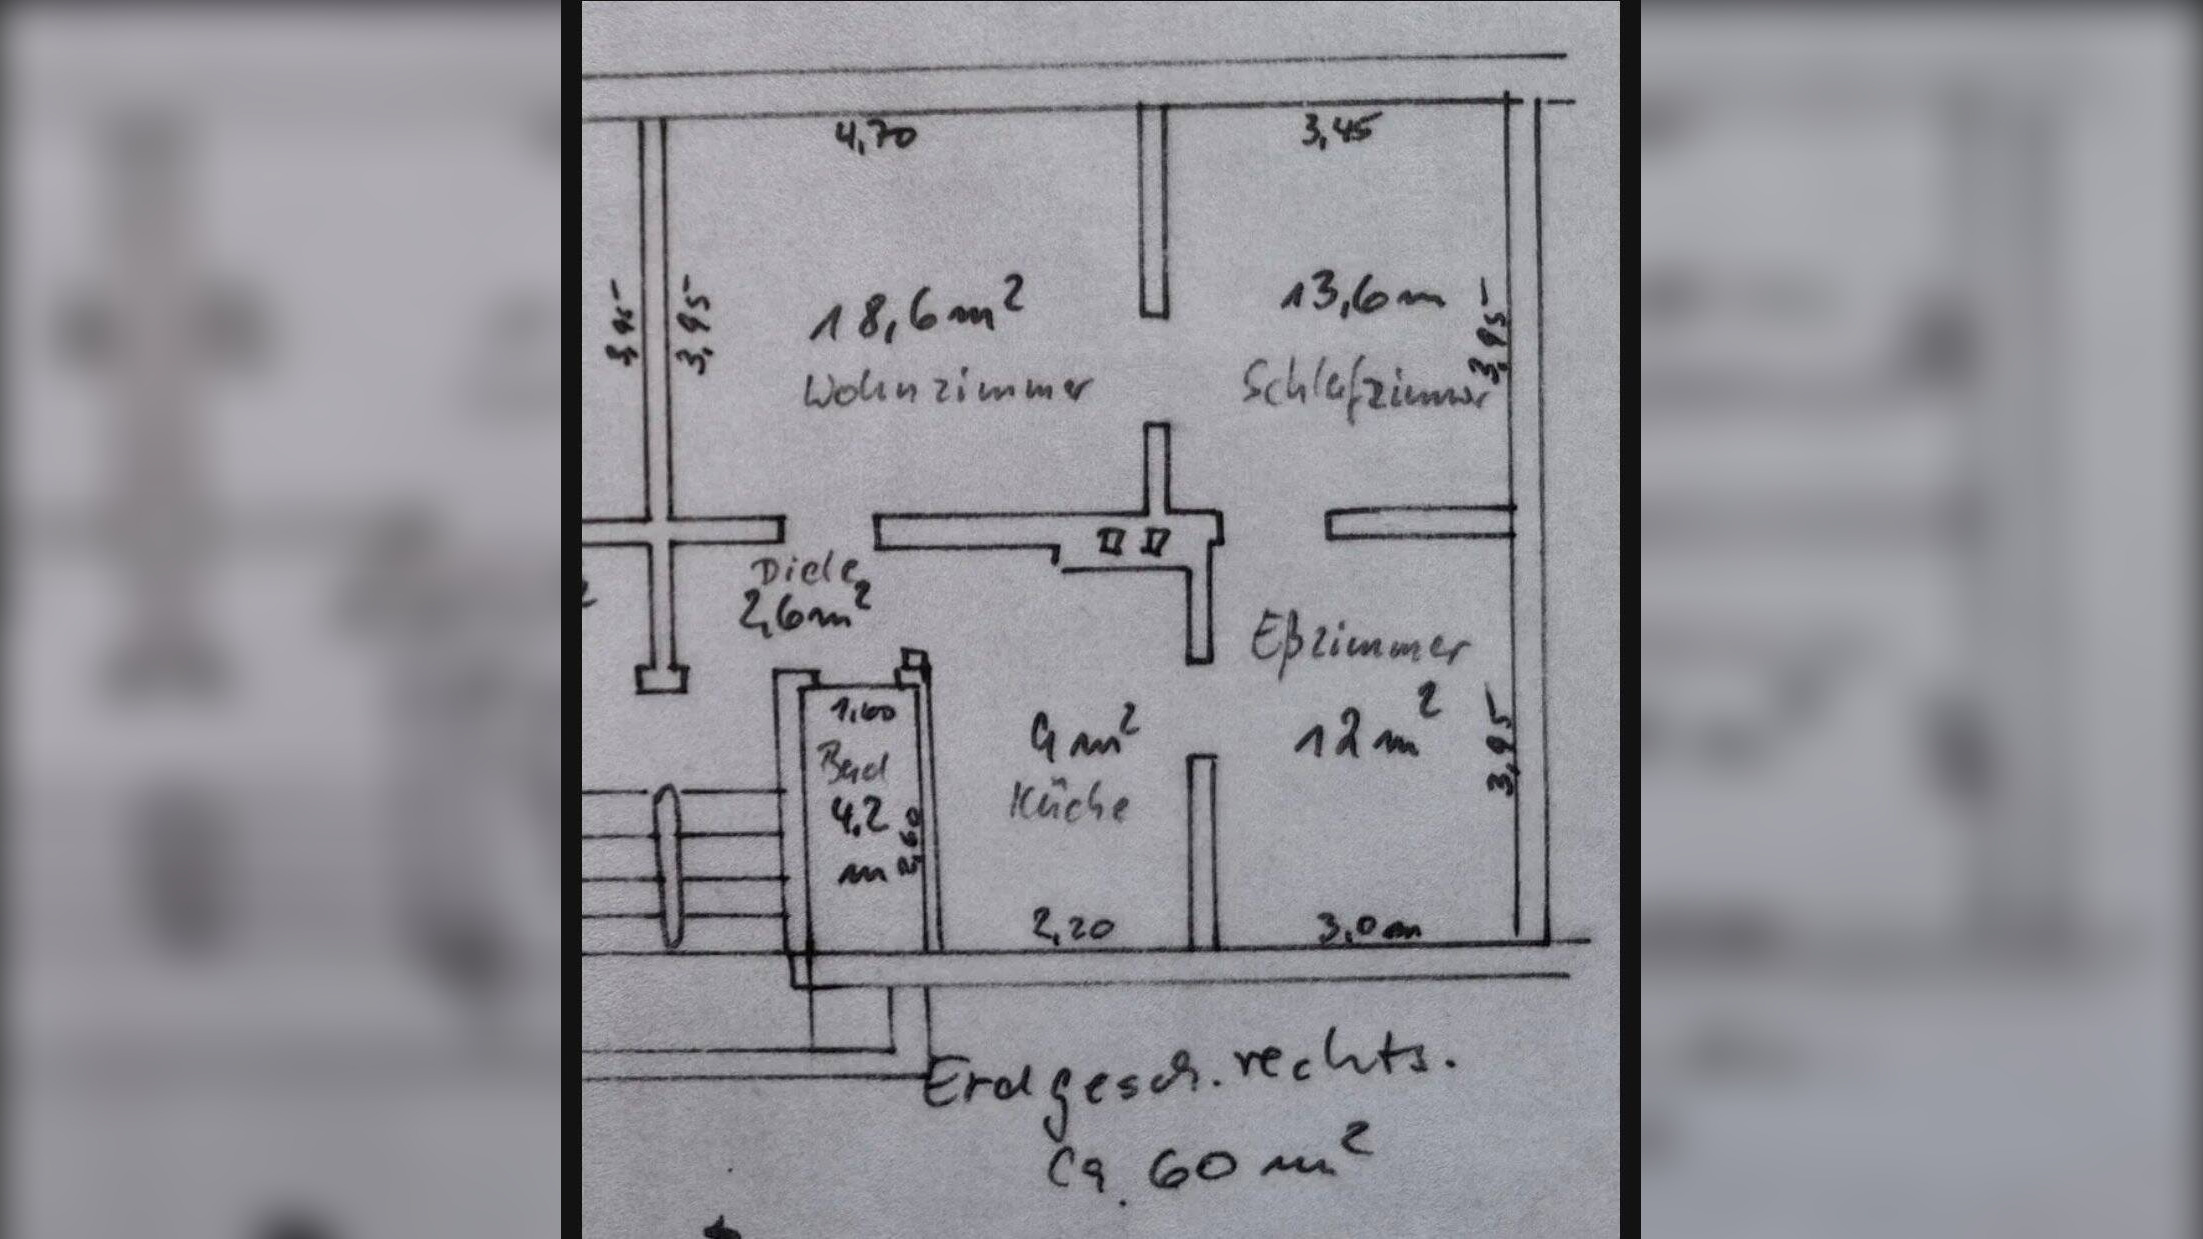 4,70
3,45
3,95
3,95
18,6 m²
Wohnzimmer
13,6 m
Schlafzimmer
3,95
Diele
2,6 m²
Eßzimmer
12 m²
3,95
1,60
Bad
4,2
m²
2,60
9 m²
Küche
2,20
3,0 m
Erdgesch. rechts.
Ca. 60 m²